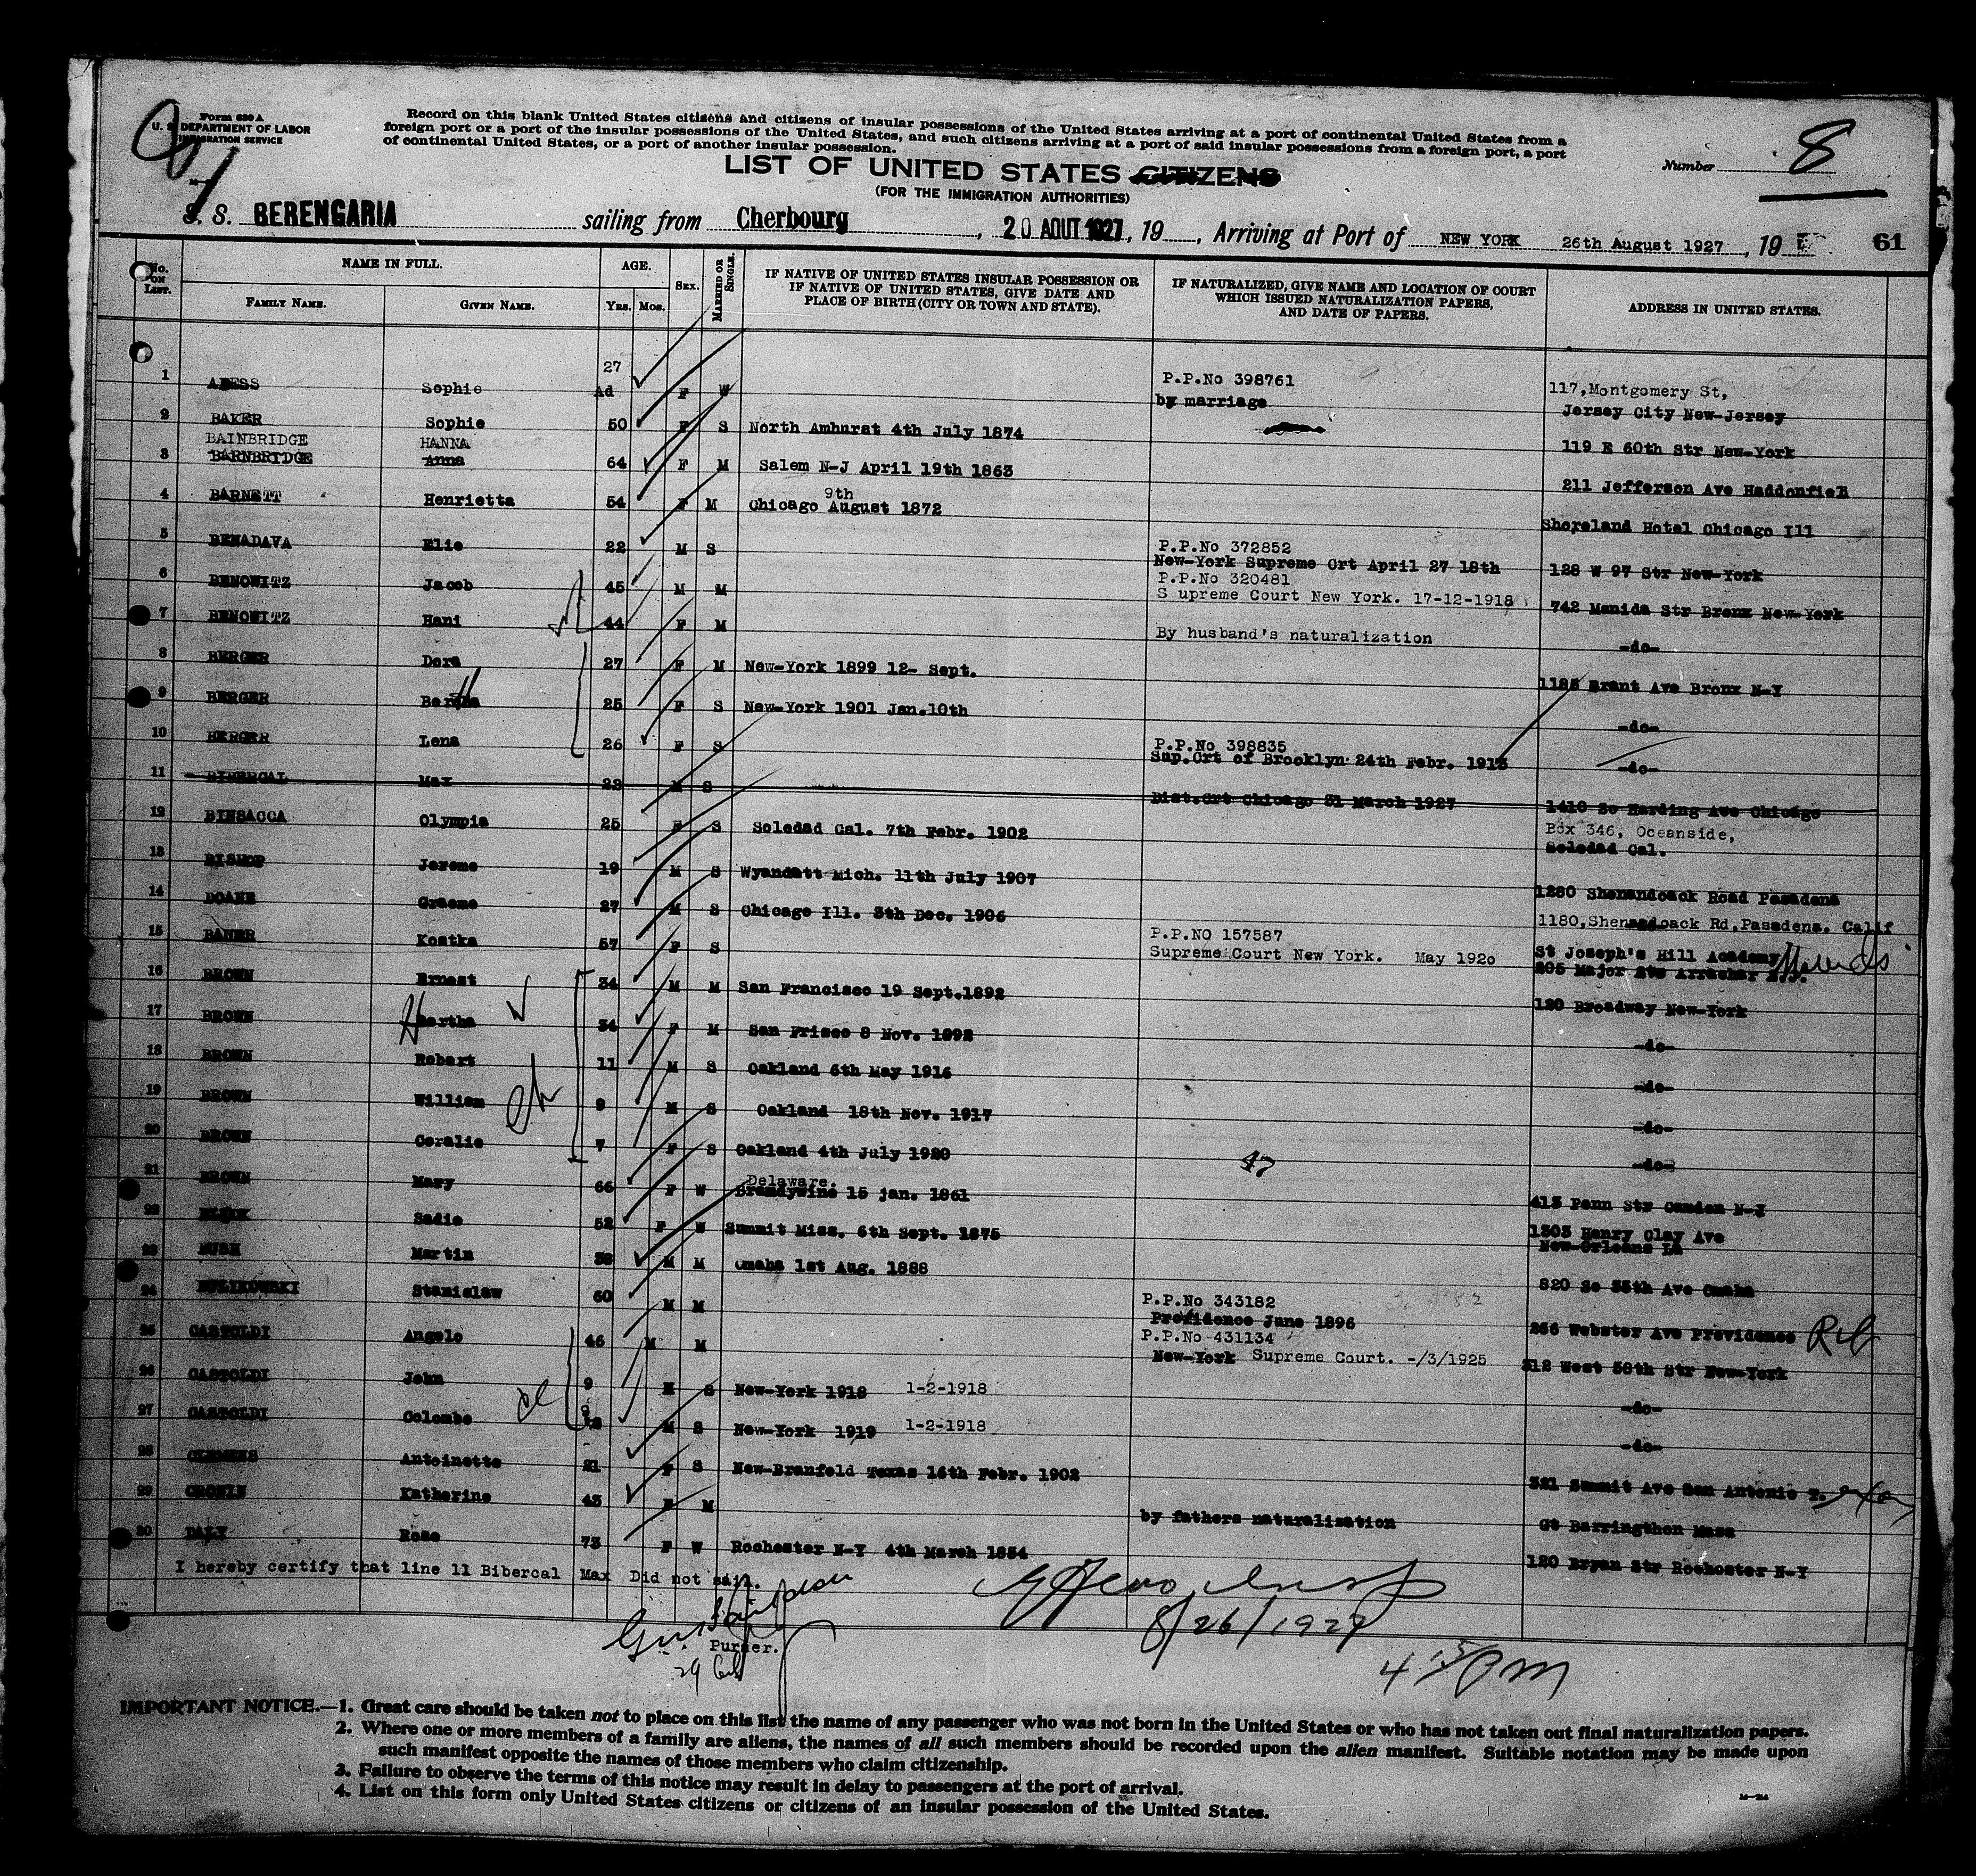 Form 630 A
U. S. DEPARTMENT OF LABOR
IMMIGRATION SERVICE
Record on this blank United States citizens and citizens of insular possessions of the United States arriving at a port of continental United States from a
foreign port or a port of the insular possessions of the United States, and such citizens arriving at a port of said insular possessions from a foreign port, a port
of continental United States, or a port of another insular possession.
LIST OF UNITED STATES CITIZENS
(FOR THE IMMIGRATION AUTHORITIES)
Number 8
S. S. BERENGARIA sailing from Cherbourg, 20 AOUT 1927, 19 , Arriving at Port of NEW YORK 26th August 1927, 19 61
No. ON LIST. NAME IN FULL. AGE. SEX. MARRIED OR SINGLE. IF NATIVE OF UNITED STATES INSULAR POSSESSION OR IF NATIVE OF UNITED STATES, GIVE DATE AND PLACE OF BIRTH (CITY OR TOWN AND STATE). IF NATURALIZED, GIVE NAME AND LOCATION OF COURT WHICH ISSUED NATURALIZATION PAPERS, AND DATE OF PAPERS. ADDRESS IN UNITED STATES.
FAMILY NAME. GIVEN NAME. YRS. MOS.
1 ABESS Sophie 27 Ad F W P.P.No 398761 by marriage 117,Montgomery St, Jersey City New-Jersey
2 BAKER Sophie 50 F S North Amhurst 4th July 1874 119 E 60th Str New-York
3 BAINBRIDGE BARNBRIDGE HANNA Anna 64 F M Salem N-J April 19th 1863 211 Jefferson Ave Haddonfiel
4 BARNETT Henrietta 54 F M Chicago 9th August 1872 Shoreland Hotel Chicago Ill
5 BENADAVA Elie 22 M S P.P.No 372852 New-York Supreme Crt April 27 18th 128 W 97 Str New-York
6 BENOWITZ Jacob 45 M M P.P.No 320481 S upreme Court New York. 17-12-1918 742 Manida Str Bronx New-York
7 BENOWITZ Hani 44 F M By husband's naturalization -do-
8 BERGER Dora 27 F M New-York 1899 12- Sept. 1185 Grant Ave Bronx N-Y
9 BERGER Bertha 25 F S New-York 1901 Jan.10th -do-
10 BERGER Lena 26 F S P.P.No 398835 Sup.Crt of Brooklyn 24th Febr. 1913 -do-
11 BIBERCAL Max 23 M S Dist.Crt Chicago 31 March 1927 1410 So Harding Ave Chicago
12 BINSACCA Olympia 25 F S Soledad Cal. 7th Febr. 1902 Box 346, Oceanside, Soledad Cal.
13 BISHOP Jerome 19 M S Wyandatt Mich. 11th July 1907 1280 Shenandoack Road Pasadena
14 DOANE Graeme 27 M S Chicago Ill. 5th Dec. 1906 1180,Shenandoack Rd,Pasadena. Calif
15 BANER Kostka 57 F S P.P.NO 157587 Supreme Court New York. May 1920 St Joseph's Hill Academy 205 Major Ave Arrochar N.Y.
16 BROWN Ernest 34 M M San Francisco 19 Sept.1892 120 Broadway New-York
17 BROWN Hertha 34 F M San Frisco 8 Nov. 1892 -do-
18 BROWN Robert 11 M S Oakland 6th May 1916 -do-
19 BROWN William 9 M S Oakland 18th Nov. 1917 -do-
20 BROWN Coralie 7 F S Oakland 4th July 1920 -do-
47
21 BROWN Mary 66 F W Delaware. Brandywine 15 jan. 1861 413 Penn Str Camden N-J
22 Sadie 52 F W Summit Miss. 6th Sept. 1875 1303 Henry Clay Ave New-Orleans LA
23 BUSH Martin 38 M M Omaha 1st Aug. 1888 820 So 35th Ave Omaha
24 Stanislaw 60 M M P.P.No 343182 Providence June 1896 256 Webster Ave Providence
25 CASTOLDI Angelo 46 M M P.P.No 431134 New-York Supreme Court. -/3/1925 312 West 58th Str New-York
26 CASTOLDI John 9 M S New-York 1918 1-2-1918 -do-
27 CASTOLDI Colombo 9 M S New-York 1919 1-2-1918 -do-
28 CLEMENS Antoinette 21 F S New-Branfeld Texas 16th Febr. 1902 321 Summit Ave San Antonio T.
29 CRONIN Katherine 43 F M by fathers naturalisation Gt Barringthon Mass
30 DALY Rose 73 F W Rochester N-Y 4th March 1854 120 Bryan Str Rochester N-Y
I hereby certify that line 11 Bibercal Max Did not sail.
Purser.
8/26/1927
4 30 PM
IMPORTANT NOTICE.—1. Great care should be taken not to place on this list the name of any passenger who was not born in the United States or who has not taken out final naturalization papers.
2. Where one or more members of a family are aliens, the names of all such members should be recorded upon the alien manifest. Suitable notation may be made upon
such manifest opposite the names of those members who claim citizenship.
3. Failure to observe the terms of this notice may result in delay to passengers at the port of arrival.
4. List on this form only United States citizens or citizens of an insular possession of the United States.